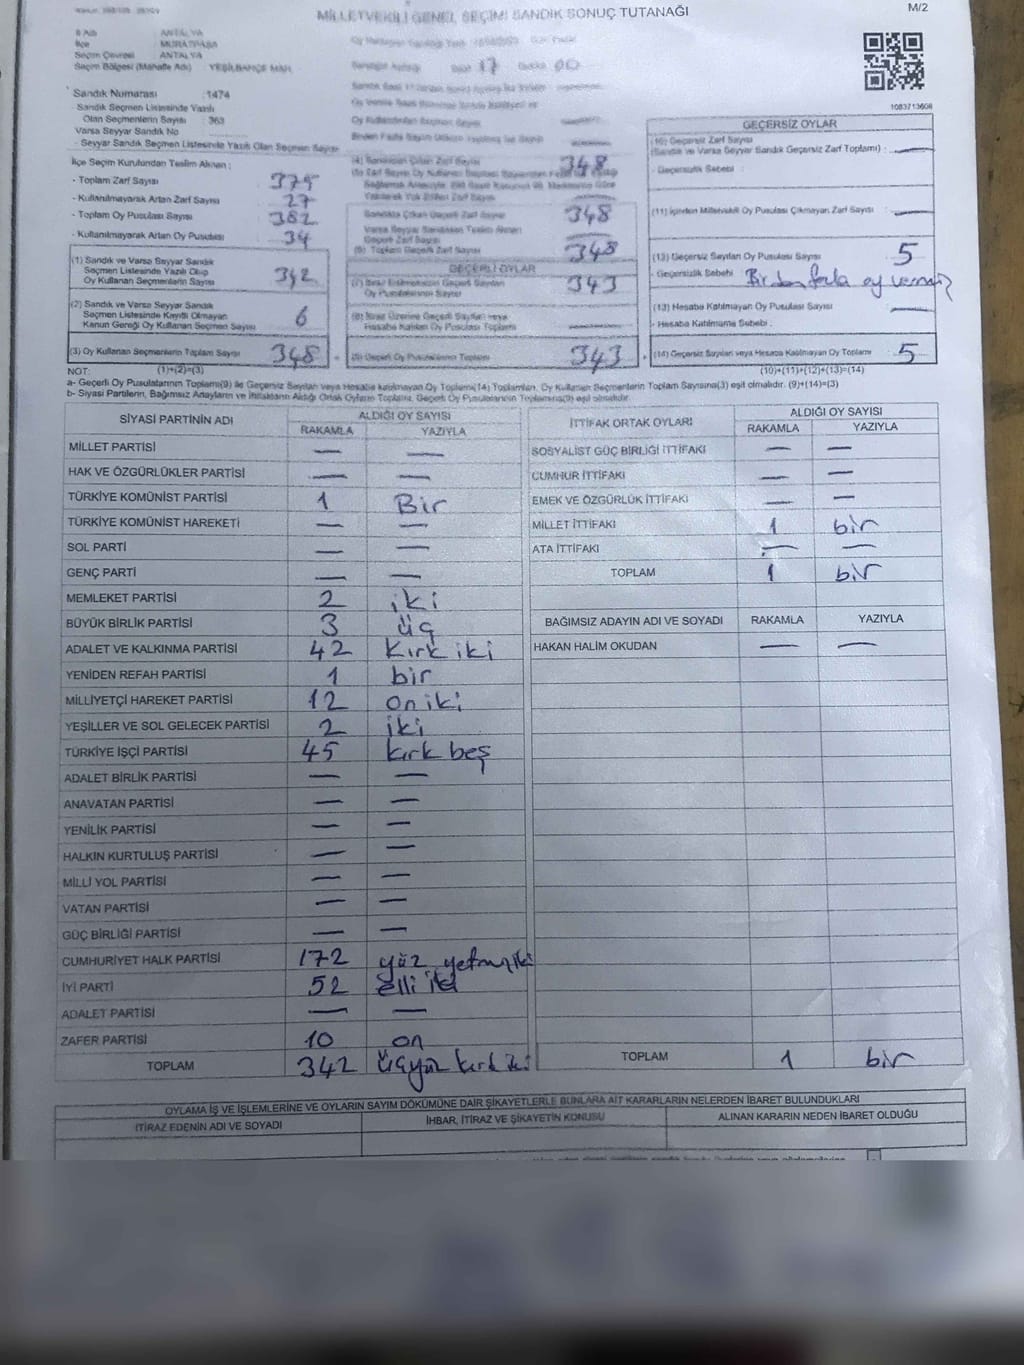 MİLLETVEKİLİ GENEL SEÇİMİ SANDIK SONUÇ TUTANAĞI
M/2
İl Adı : ANTALYA
İlçe : MURATPAŞA
Seçim Çevresi : ANTALYA
Seçim Bölgesi (Mahalle Adı) : YEŞİLBAHÇE MAH.
17 00
Sandık Numarası : 1474
Sandık Seçmen Listesinde Yazılı
Olan Seçmenlerin Sayısı : 363
Varsa Seyyar Sandık No
Seyyar Sandık Seçmen Listesinde Yazılı Olan Seçmen Sayısı
1083713608
İlçe Seçim Kurulundan Teslim Alınan :
- Toplam Zarf Sayısı 375
- Kullanılmayarak Artan Zarf Sayısı 27
- Toplam Oy Pusulası Sayısı 382
- Kullanılmayarak Artan Oy Pusulası 34
(1) Sandık ve Varsa Seyyar Sandık
Seçmen Listesinde Yazılı Olup
Oy Kullanan Seçmenlerin Sayısı 342
(2) Sandık ve Varsa Seyyar Sandık
Seçmen Listesinde Kayıtlı Olmayan
Kanun Gereği Oy Kullanan Seçmen Sayısı 6
(3) Oy Kullanan Seçmenlerin Toplam Sayısı 348
(4) Sandıktan Çıkan Zarf Sayısı 348
Sandıkta Çıkan Geçerli Zarf Sayısı 348
Varsa Seyyar Sandıktan Teslim Alınan
Geçerli Zarf Sayısı
(6) Toplam Geçerli Zarf Sayısı 348
GEÇERLİ OYLAR
(7) İtiraz Edilmeksizin Geçerli Sayılan
Oy Pusulalarının Sayısı 343
(8) İtiraz Üzerine Geçerli Sayılan veya
Hesaba Katılan Oy Pusulası Toplamı
(9) Geçerli Oy Pusulalarının Toplamı 343
GEÇERSİZ OYLAR
(10) Geçersiz Zarf Sayısı
(Sandık ve Varsa Seyyar Sandık Geçersiz Zarf Toplamı) :
- Geçersizlik Sebebi :
(11) İçinden Milletvekili Oy Pusulası Çıkmayan Zarf Sayısı :
(12) Geçersiz Sayılan Oy Pusulası Sayısı 5
- Geçersizlik Sebebi : Birden fazla oy
(13) Hesaba Katılmayan Oy Pusulası Sayısı
- Hesaba Katılmama Sebebi :
(14) Geçersiz Sayılan veya Hesaba Katılmayan Oy Toplamı 5
NOT: (1)+(2)=(3) (10)+(11)+(12)+(13)=(14)
a- Geçerli Oy Pusulalarının Toplamı(9) ile Geçersiz Sayılan veya Hesaba katılmayan Oy Toplamı(14) Toplamları, Oy Kullanan Seçmenlerin Toplam Sayısına(3) eşit olmalıdır. (9)+(14)=(3)
b- Siyasi Partilerin, Bağımsız Adayların ve İttifakların Aldığı Ortak Oyların Toplamı, Geçerli Oy Pusulalarının Toplamına(9) eşit olmalıdır.
SİYASİ PARTİNİN ADI ALDIĞI OY SAYISI
RAKAMLA YAZIYLA
MİLLET PARTİSİ — —
HAK VE ÖZGÜRLÜKLER PARTİSİ — —
TÜRKİYE KOMÜNİST PARTİSİ 1 Bir
TÜRKİYE KOMÜNİST HAREKETİ — —
SOL PARTİ — —
GENÇ PARTİ — —
MEMLEKET PARTİSİ 2 iki
BÜYÜK BİRLİK PARTİSİ 3 üç
ADALET VE KALKINMA PARTİSİ 42 kırk iki
YENİDEN REFAH PARTİSİ 1 bir
MİLLİYETÇİ HAREKET PARTİSİ 12 on iki
YEŞİLLER VE SOL GELECEK PARTİSİ 2 iki
TÜRKİYE İŞÇİ PARTİSİ 45 kırk beş
ADALET BİRLİK PARTİSİ — —
ANAVATAN PARTİSİ — —
YENİLİK PARTİSİ — —
HALKIN KURTULUŞ PARTİSİ — —
MİLLİ YOL PARTİSİ — —
VATAN PARTİSİ — —
GÜÇ BİRLİĞİ PARTİSİ — —
CUMHURİYET HALK PARTİSİ 172 yüz yetmiş iki
İYİ PARTİ 52 elli iki
ADALET PARTİSİ — —
ZAFER PARTİSİ 10 on
TOPLAM 342 üçyüz kırk iki
İTTİFAK ORTAK OYLARI ALDIĞI OY SAYISI
RAKAMLA YAZIYLA
SOSYALİST GÜÇ BİRLİĞİ İTTİFAKI — —
CUMHUR İTTİFAKI — —
EMEK VE ÖZGÜRLÜK İTTİFAKI — —
MİLLET İTTİFAKI 1 bir
ATA İTTİFAKI — —
TOPLAM 1 bir
BAĞIMSIZ ADAYIN ADI VE SOYADI RAKAMLA YAZIYLA
HAKAN HALİM OKUDAN — —
TOPLAM 1 bir
OYLAMA İŞ VE İŞLEMLERİNE VE OYLARIN SAYIM DÖKÜMÜNE DAİR ŞİKAYETLERLE BUNLARA AİT KARARLARIN NELERDEN İBARET BULUNDUKLARI
İTİRAZ EDENİN ADI VE SOYADI İHBAR, İTİRAZ VE ŞİKAYETİN KONUSU ALINAN KARARIN NEDEN İBARET OLDUĞU